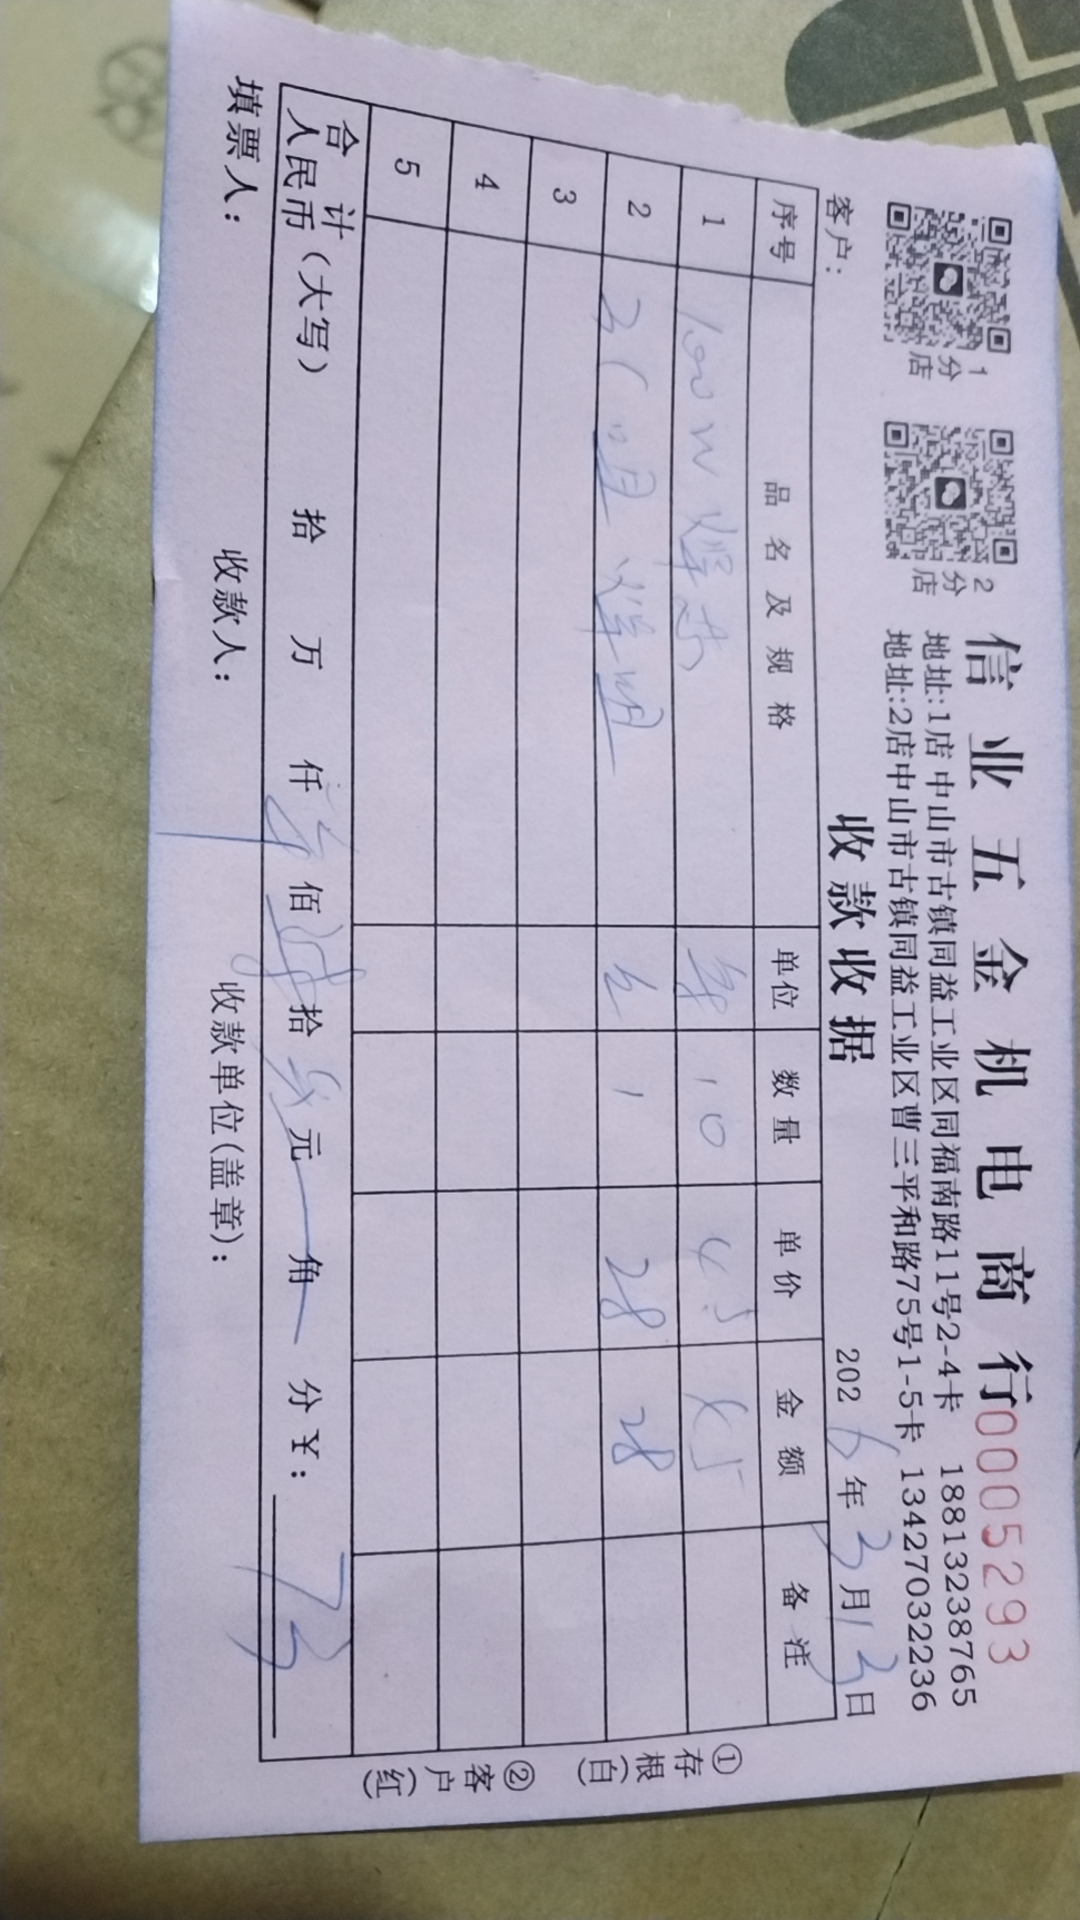 信业五金机电商行 0005293
1分店
2分店
地址:1店 中山市古镇同益工业区同福南路11号2-4卡 18813238765
地址:2店中山市古镇同益工业区曹三平和路75号1-5卡 13427032236
收款收据
客户: 2026年3月13日
序号 品名及规格 单位 数量 单价 金额 备注
1 100W 10 4.5 45
2 1 28 28
3
4
5
合计
人民币(大写) 拾 万 仟 佰 拾 元 角 分 ¥: 73
填票人: 收款人: 收款单位(盖章):
①存根(白)
②客户(红)